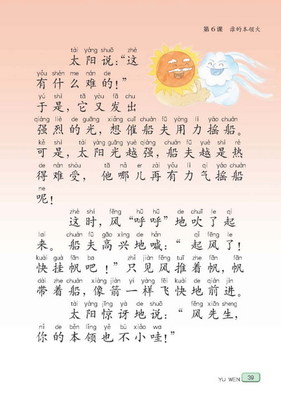 第6课 谁的本领大
tài yáng shuō zhè
太阳说:“这
yǒu shén me nán de
有什么难的!”
yú shì tā yòu fā chū
于是,它又发出
qiáng liè de guāng xiǎng cuī chuán fū yòng lì yáo chuán
强烈的光,想催船夫用力摇船。
kě shì tài yáng guāng yuè qiáng chuán fū yuè shì rè
可是,太阳光越强,船夫越是热
de nán shòu tā nǎ ér zài yǒu lì qì yáo chuán
得难受,他哪儿再有力气摇船
ne
呢!
zhè shí fēng hū hū de chuī le qǐ
这时,风“呼呼”地吹了起
lái chuán fū gāo xìng de hǎn qǐ fēng le
来。船夫高兴地喊:“起风了!
kuài guà fān ba zhǐ jiàn fēng tuī zhe fān fān
快挂帆吧!”只见风推着帆,帆
dài zhe chuán xiàng jiàn yí yàng fēi kuài de qián jìn
带着船,像箭一样飞快地前进。
tài yáng jīng yà de shuō fēng xiān sheng
太阳惊讶地说:“风先生,
nǐ de běn lǐng yě bù xiǎo wa
你的本领也不小哇!”
YU WEN 39